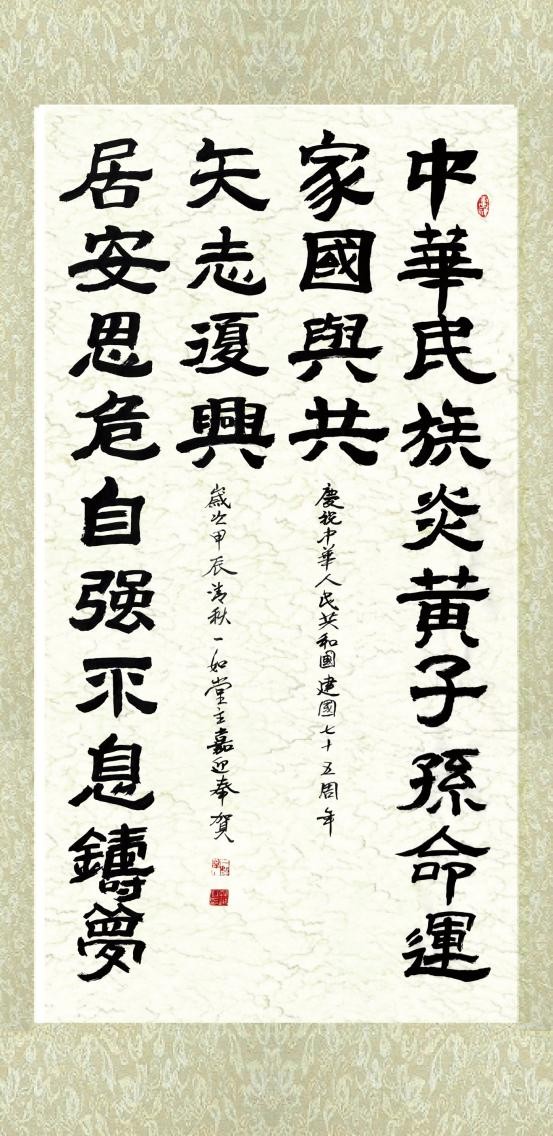 中華民族炎黃子孫命運
家國與共
居安思危自强不息鑄夢
矢志復興
慶祝中華人民共和國建國七十五周年
歲次甲辰清秋一如堂主嘉迎奉賀